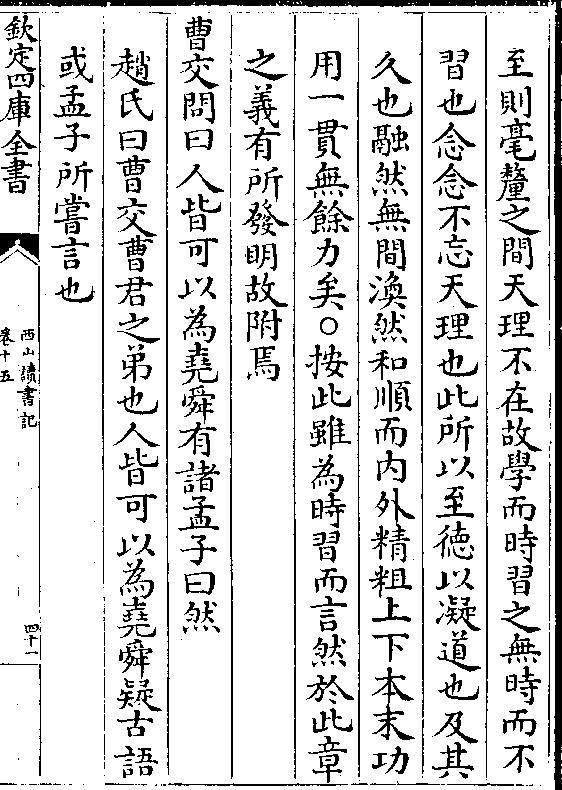 至則毫釐之間天理不在故學而時習之無時而不
習也念念不忘天理也此所以至德以凝道也及其
久也融然無間渙然和順而内外精粗上下本末功
用一貫無餘力矣○按此雖為時習而言然於此章
之義有所發明故附焉
曹交問曰人皆可以為堯舜有諸孟子曰然
趙氏曰曹交曹君之弟也人皆可以為堯舜疑古語
或孟子所嘗言也
欽定四庫全書
西山讀書記
卷十五
四十一